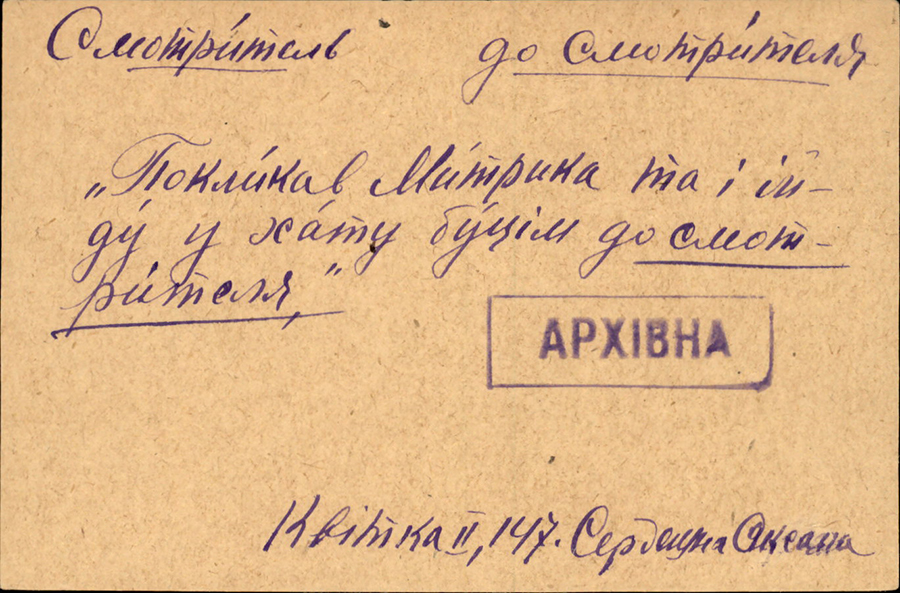 Смотри́тель до смотри́теля
„Покли́кав Ми́трика та і ій-
ду́ у ха́ту бу́цім до смот-
ри́теля,"
АРХІВНА
Квітка II, 147. Сердешна Оксана